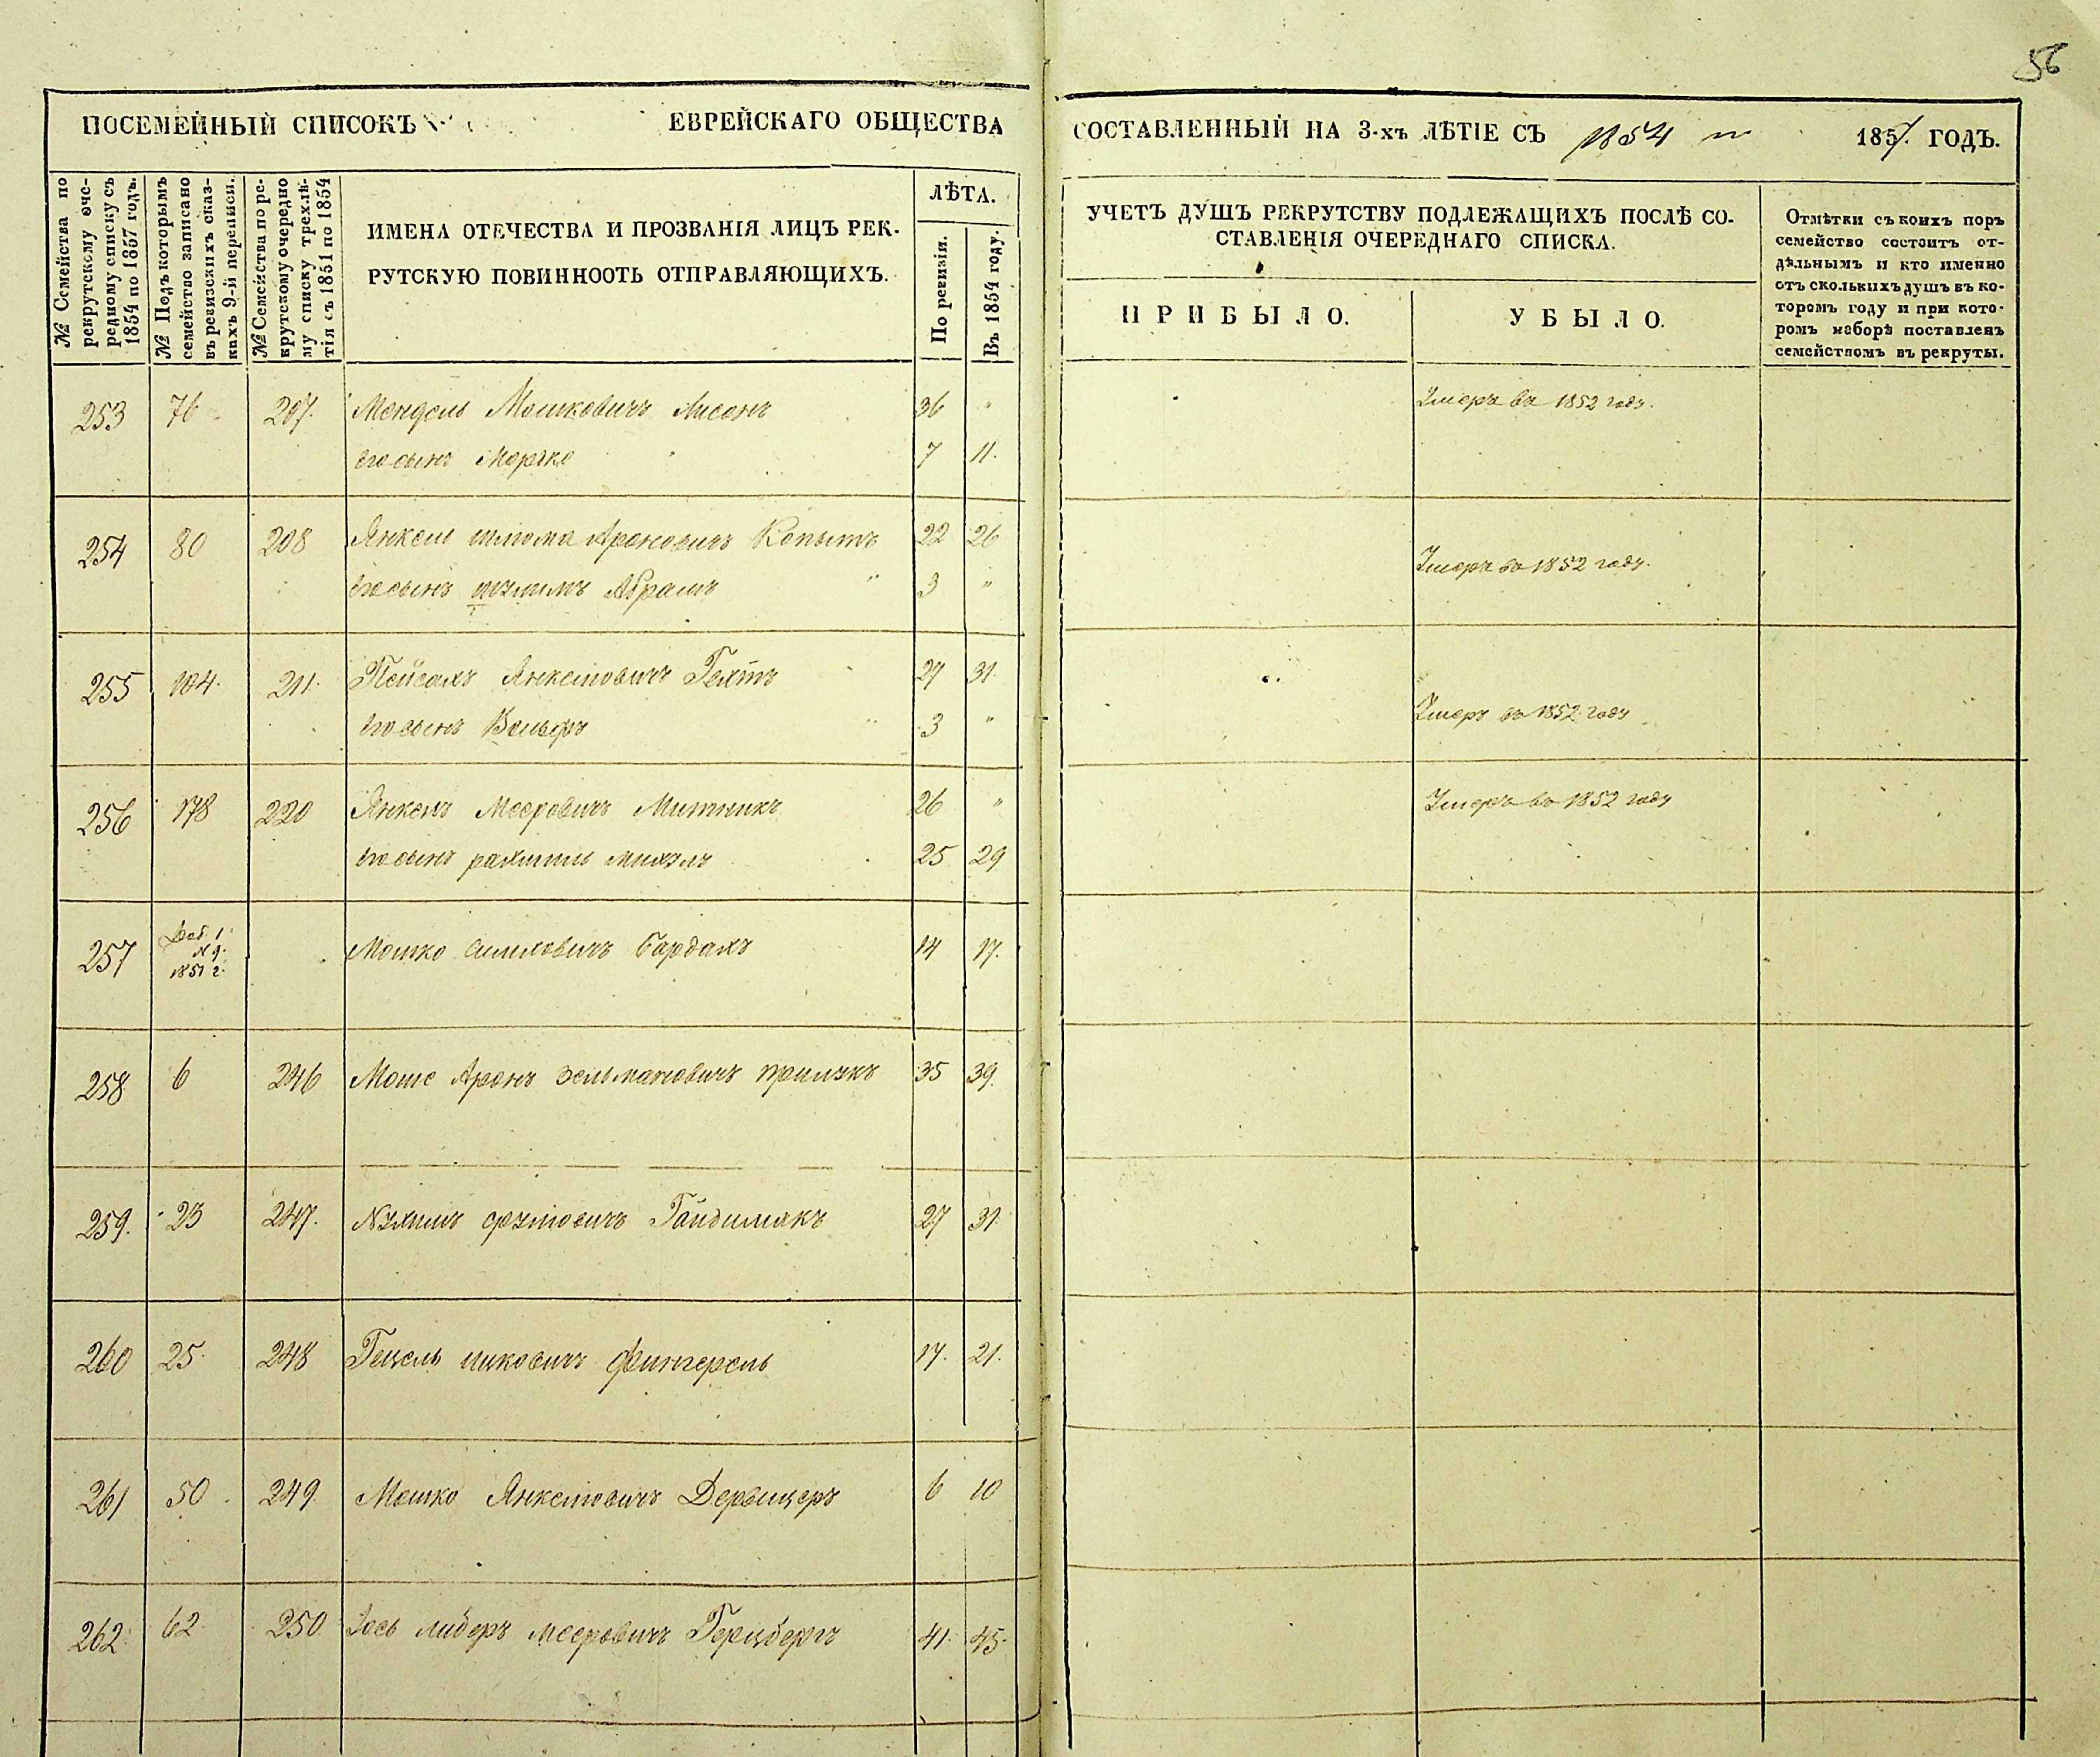 56
ПОСЕМЕЙНЫЙ СПИСОКЪ ЕВРЕЙСКАГО ОБЩЕСТВА СОСТАВЛЕННЫЙ НА 3-хъ ЛѢТІЕ СЪ 1854 по 1857. ГОДЪ.
№ Семейства по
рекрутскому оче-
редному списку съ
1854 по 1857 годъ.
№ Подъ которымъ
семейство записано
въ ревизскихъ сказ-
кахъ 9-й переписи.
№ Семейства по ре-
крутскому очередно
му списку трехлѣ-
тія съ 1851 по 1854
ИМЕНА ОТЕЧЕСТВА И ПРОЗВАНІЯ ЛИЦЪ РЕК-
РУТСКУЮ ПОВИННООТЬ ОТПРАВЛЯЮЩИХЪ.
ЛѢТА.
По ревизіи.
Въ 1854 году.
УЧЕТЪ ДУШЪ РЕКРУТСТВУ ПОДЛЕЖАЩИХЪ ПОСЛѢ СО-
СТАВЛЕНІЯ ОЧЕРЕДНАГО СПИСКА.
ПРИБЫЛО.
УБЫЛО.
Отмѣтки съ коихъ поръ
семейство состоитъ от-
дѣльнымъ и кто именно
отъ сколькихъ душъ въ ко-
торомъ году и при кото-
ромъ наборѣ поставленъ
семействомъ въ рекруты.
253 76 207. Мендель Мошковичъ Лисонъ 36 " Умеръ въ 1852 году.
Его сынъ Мортко 7 11.
254 80 208 Янкель Шлиома Ароновичъ Копытъ 22 26
Его сынъ Абрамъ " 3 " Умеръ въ 1852 году.
255 104. 211. Пейсахъ Янкелювичъ Гехтъ 27 31.
Его сынъ Вольфъ " 3 " Умеръ въ 1852 году
256 178 220 Янкель Мееровичъ Митникъ 26 " Умеръ въ 1852 году
Его сынъ Рахмиль Михель 25 29
257 1851 г. Мошко Бардахъ 14 17.
258 6 246 Моше Аронъ Зельмановичъ Прилукъ 35 39.
259. 23 247. Нухимъ Гайдимакъ 27 31.
260 25. 248 Гецель Ицковичъ Фингерель 17. 21.
261 50. 249. Мошко Янкелювичъ Дервицеръ 6 10
262. 62. 250 Іось Либеръ Мееровичъ Герцбергъ 41. 45.